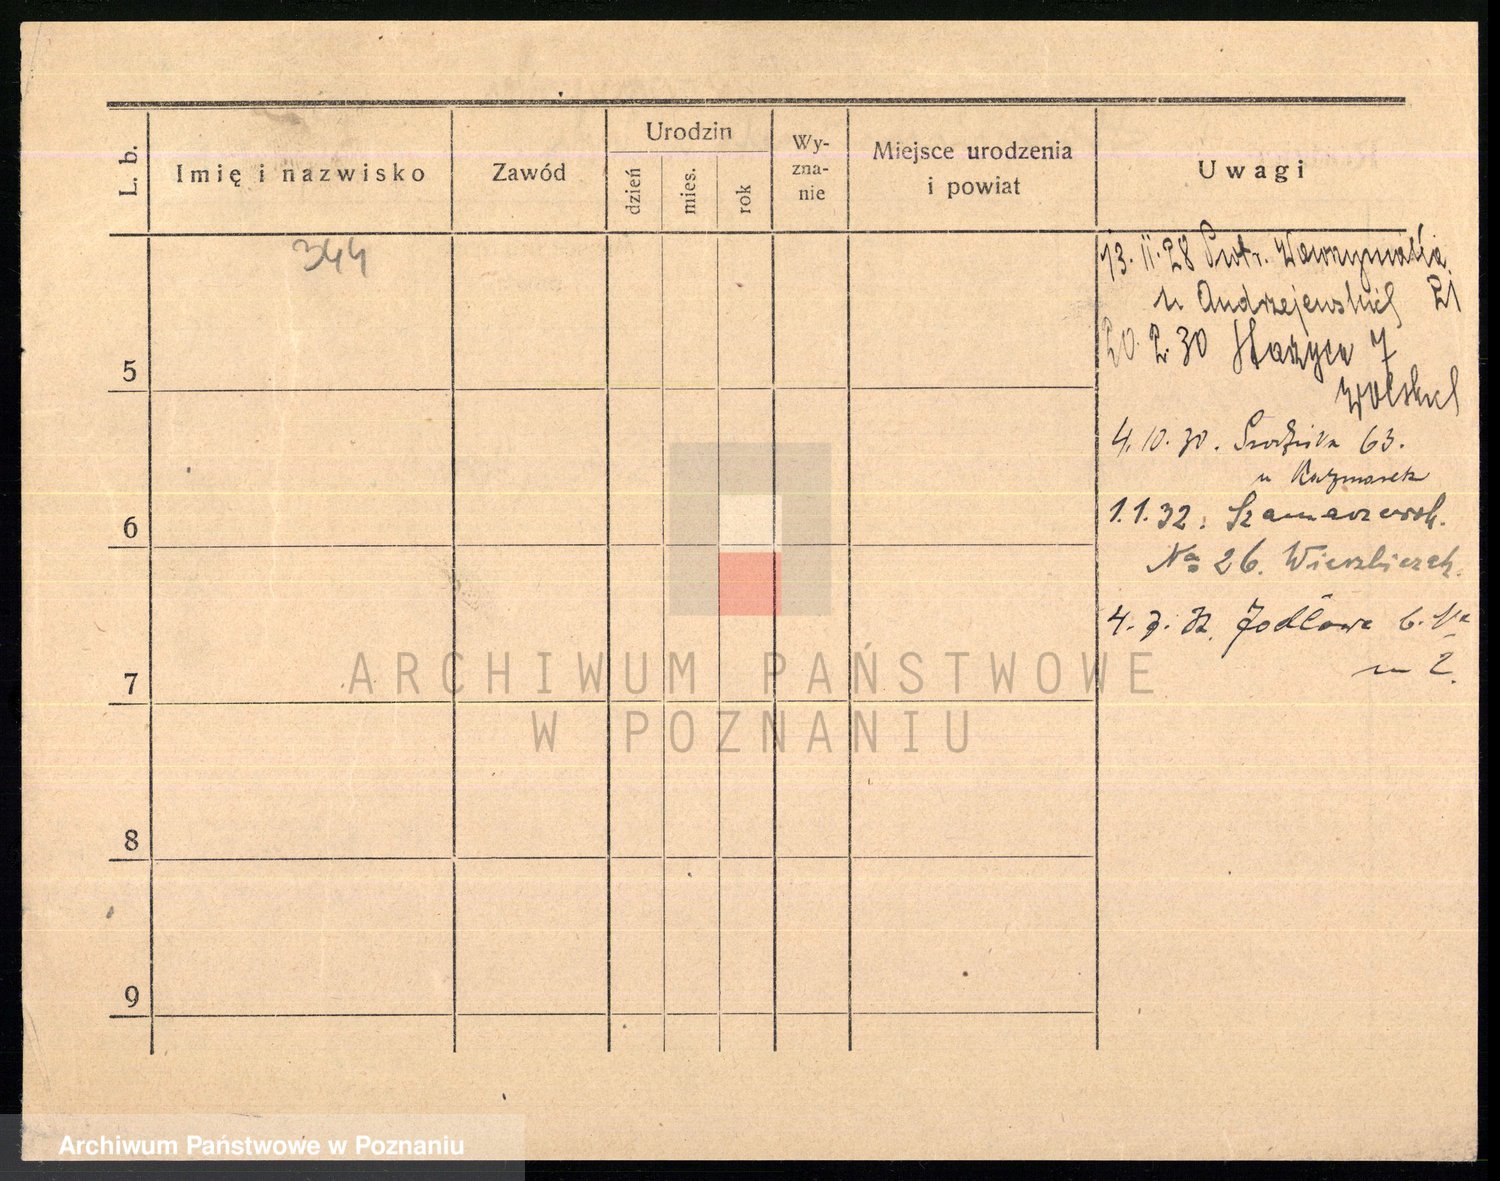 L. b.
Imię i nazwisko
Zawód
Urodzin
dzień
mies.
rok
Wy-
zna-
nie
Miejsce urodzenia
i powiat
Uwagi
344
13. 11. 28 Piotr. Wawrzyniaka
u Andrzejewskich 21
20. 2. 30 Staszyca 7
Wolskich
4. 10. 30. Szodzina 63.
u Kaczmarek
1. 1. 32. Szamarzewsk.
No 26. Wierzbiczak.
4. 7. 32. Jodłowa 6.
m 2.
5
6
7
8
9
ARCHIWUM PAŃSTWOWE
W POZNANIU
Archiwum Państwowe w Poznaniu